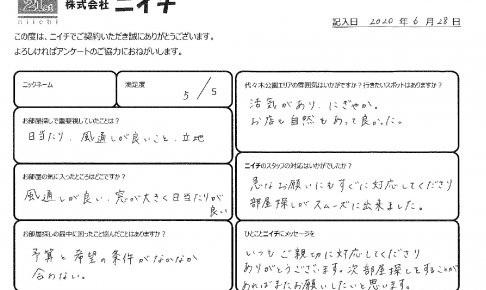 株式会社 ニイチ
niichi
記入日 2020 年 6 月 28 日
この度は、ニイチでご契約いただき誠にありがとうございます。
よろしければアンケートのご協力におねがいします。
ニックネーム
満足度
5 / 5
お部屋探しで重要視していたことは?
日当たり、風通しが良いこと、立地
お部屋の気に入ったところはどこですか?
風通しが良い、窓が大きく日当たりが
良い
お部屋探しの最中に困ったこと悩んだことはありますか?
予算と希望の条件がなかなか
合わない。
代々木公園エリアの雰囲気はいかがですか?行きたいスポットはありますか?
活気があり、にぎやか。
お店も自然もあって良かった。
ニイチのスタッフの対応はいかがでしたか?
急なお願いにもすぐに対応してくださり
部屋探しがスムーズに出来ました。
ひとことニイチにメッセージを
いつもご親切に対応してくださり
ありがとうございます。次部屋探しをすることが
あればまたお願いしたいと思います。